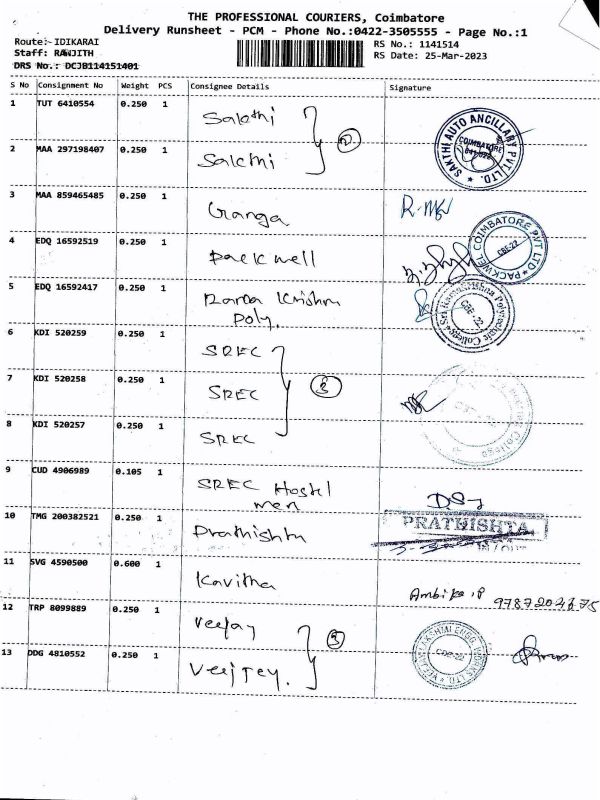 THE PROFESSIONAL COURIERS, Coimbatore
Delivery Runsheet - PCM - Phone No.:0422-3505555 - Page No.:1
Route:- IDIKARAI
RS No.: 1141514
Staff: RANJITH
RS Date: 25-Mar-2023
DRS No.: DCJB114151401
S No Consignment No Weight PCS Consignee Details Signature
1 TUT 6410554 0.250 1 Salethi
2 MAA 297198407 0.250 1 Salethi
SAKTHI AUTO ANCILLARY PVT. LTD. COIMBATORE
3 MAA 859465485 0.250 1 Ganga
4 EDQ 16592519 0.250 1 Packwell
PACKWEL COIMBATORE PVT LTD CBE-22
5 EDQ 16592417 0.250 1 Rama Krishna
Poly.
Sri Ramakrishna Polytechnic College CBE-22
6 KDI 520259 0.250 1 SREC
7 KDI 520258 0.250 1 SREC
3
8 KDI 520257 0.250 1 SREC
9 CUD 4906989 0.105 1 SREC Hostel
men
10 TMG 200382521 0.250 1 Prathishta
PRATHISHTA
11 SVG 4590500 0.600 1 Kavitha
Ambika.P
12 TRP 8099889 0.250 1 Veejay
13 DDG 4810552 0.250 1 Veejey.
CBE-22